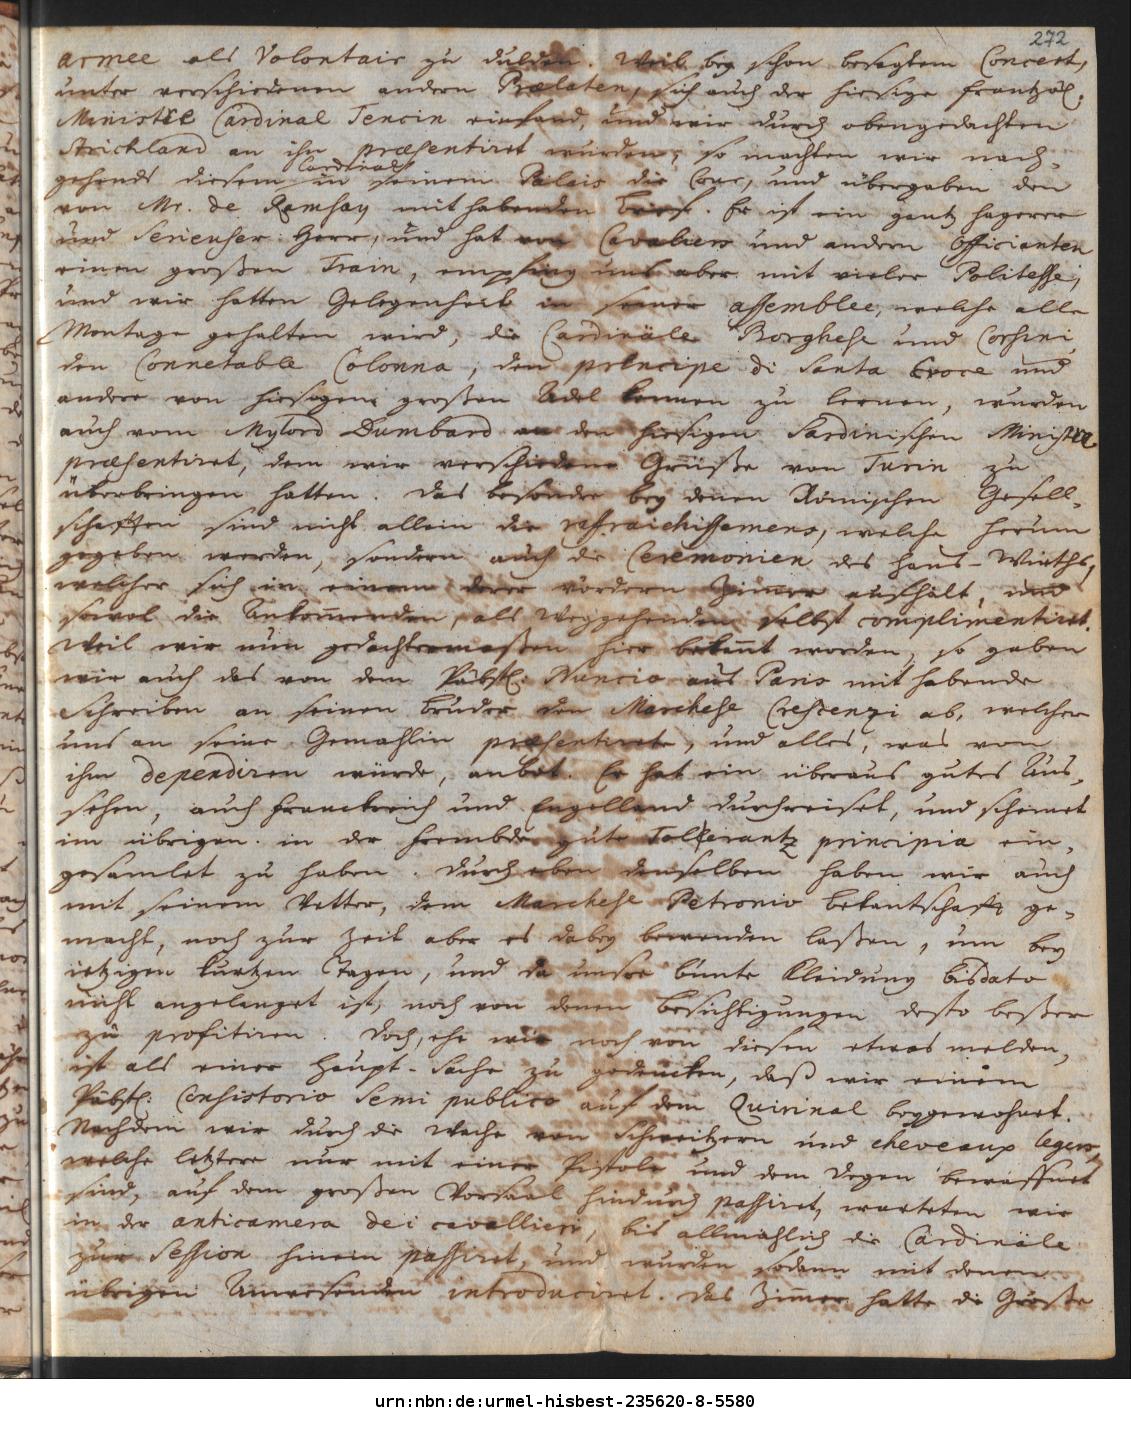 272
armee als Volontair zu dulden. Weil bey schon besagtem Concert,
unter verschiedenen andern Prælaten, sich auch der hiesige frantzös.
Ministre Cardinal Tencin einfand, und wir durch obengedachten
Strickland an ihn præsentiret wurden, so machten wir nach-
gehends diesem Cardinal in seinem Palais die Cour, und übergaben den
von Mr. de Ramsay mit habenden Brief. Er ist ein gantz hagerer
und Serieuser Herr, und hat von Cavaliers und andern Officianten
einen großen Train, empfing uns aber mit vieler Politesse,
und wir hatten Gelegenheit in seiner assemblee, welche alle
Montage gehalten wird, die Cardinäle Borghese und Corsini,
den Connetable Colonna, den principe di Santa Croce und
andere von hiesigem großen Adel kennen zu lernen, wurden
auch vom Mylord Dumbard an den hiesigen Sardinischen Ministre
præsentiret, dem wir verschiedene Grüße von Turin zu
überbringen hatten. Das besondre bey denen Römischen Gesell-
schafften sind nicht allein die raffraichissemens, welche herum
gegeben werden, sondern auch die Ceremonien des Haus-Wirths,
welcher sich in einem derer vördern Zimmer aufhält, und
sowol die Ankommenden, als Weggehenden selbst complimentiret.
Weil wir nun gedachtermaßen hier bekannt worden, so gaben
wir auch das von dem Päbstl: Nuncio aus Paris mit habende
Schreiben an seinen Bruder den Marchese Crescenzi ab, welcher
uns an seine Gemahlin præsentirete, und alles, was von
ihm dependiren würde, anbot. Er hat ein überaus gutes Aus-
sehen, auch Franckreich und Engelland durchreiset, und scheinet
im übrigen in der Frembde gute Tollerantz principia ein-
gesamlet zu haben. Durch eben denselben haben wir auch
mit seinem Vetter, dem Marchese Petronio bekantschafft ge-
macht, noch zur Zeit aber es dabey bewenden laßen, um bey
ietzigen kurtzen Tagen, und da unsre bunte Kleidung bisdato
nicht angelanget ist, noch von denen Besichtigungen desto beßer
zu profitiren. Doch, ehe wir noch von diesen etwas melden,
ist als einer Haupt-Sache zu gedencken, daß wir einem
Päbstl: Consistorio Semi publico auf dem Quirinal beygewohnet.
Nachdem wir durch die Wache von Schweitzern und cheveaux legers,
welche letztere nur mit einer Pistole und dem Degen bewaffnet
sind, auf dem großen Vorsaal hindurch passiret, warteten wir
in der anticamera dei cavallieri, bis allmählich die Cardinäle
zur Session hinein passiret, und wurden sodann mit denen
übrigen Anwesenden introduciret. Das Zimmer hatte die Größe
urn:nbn:de:urmel-hisbest-235620-8-5580